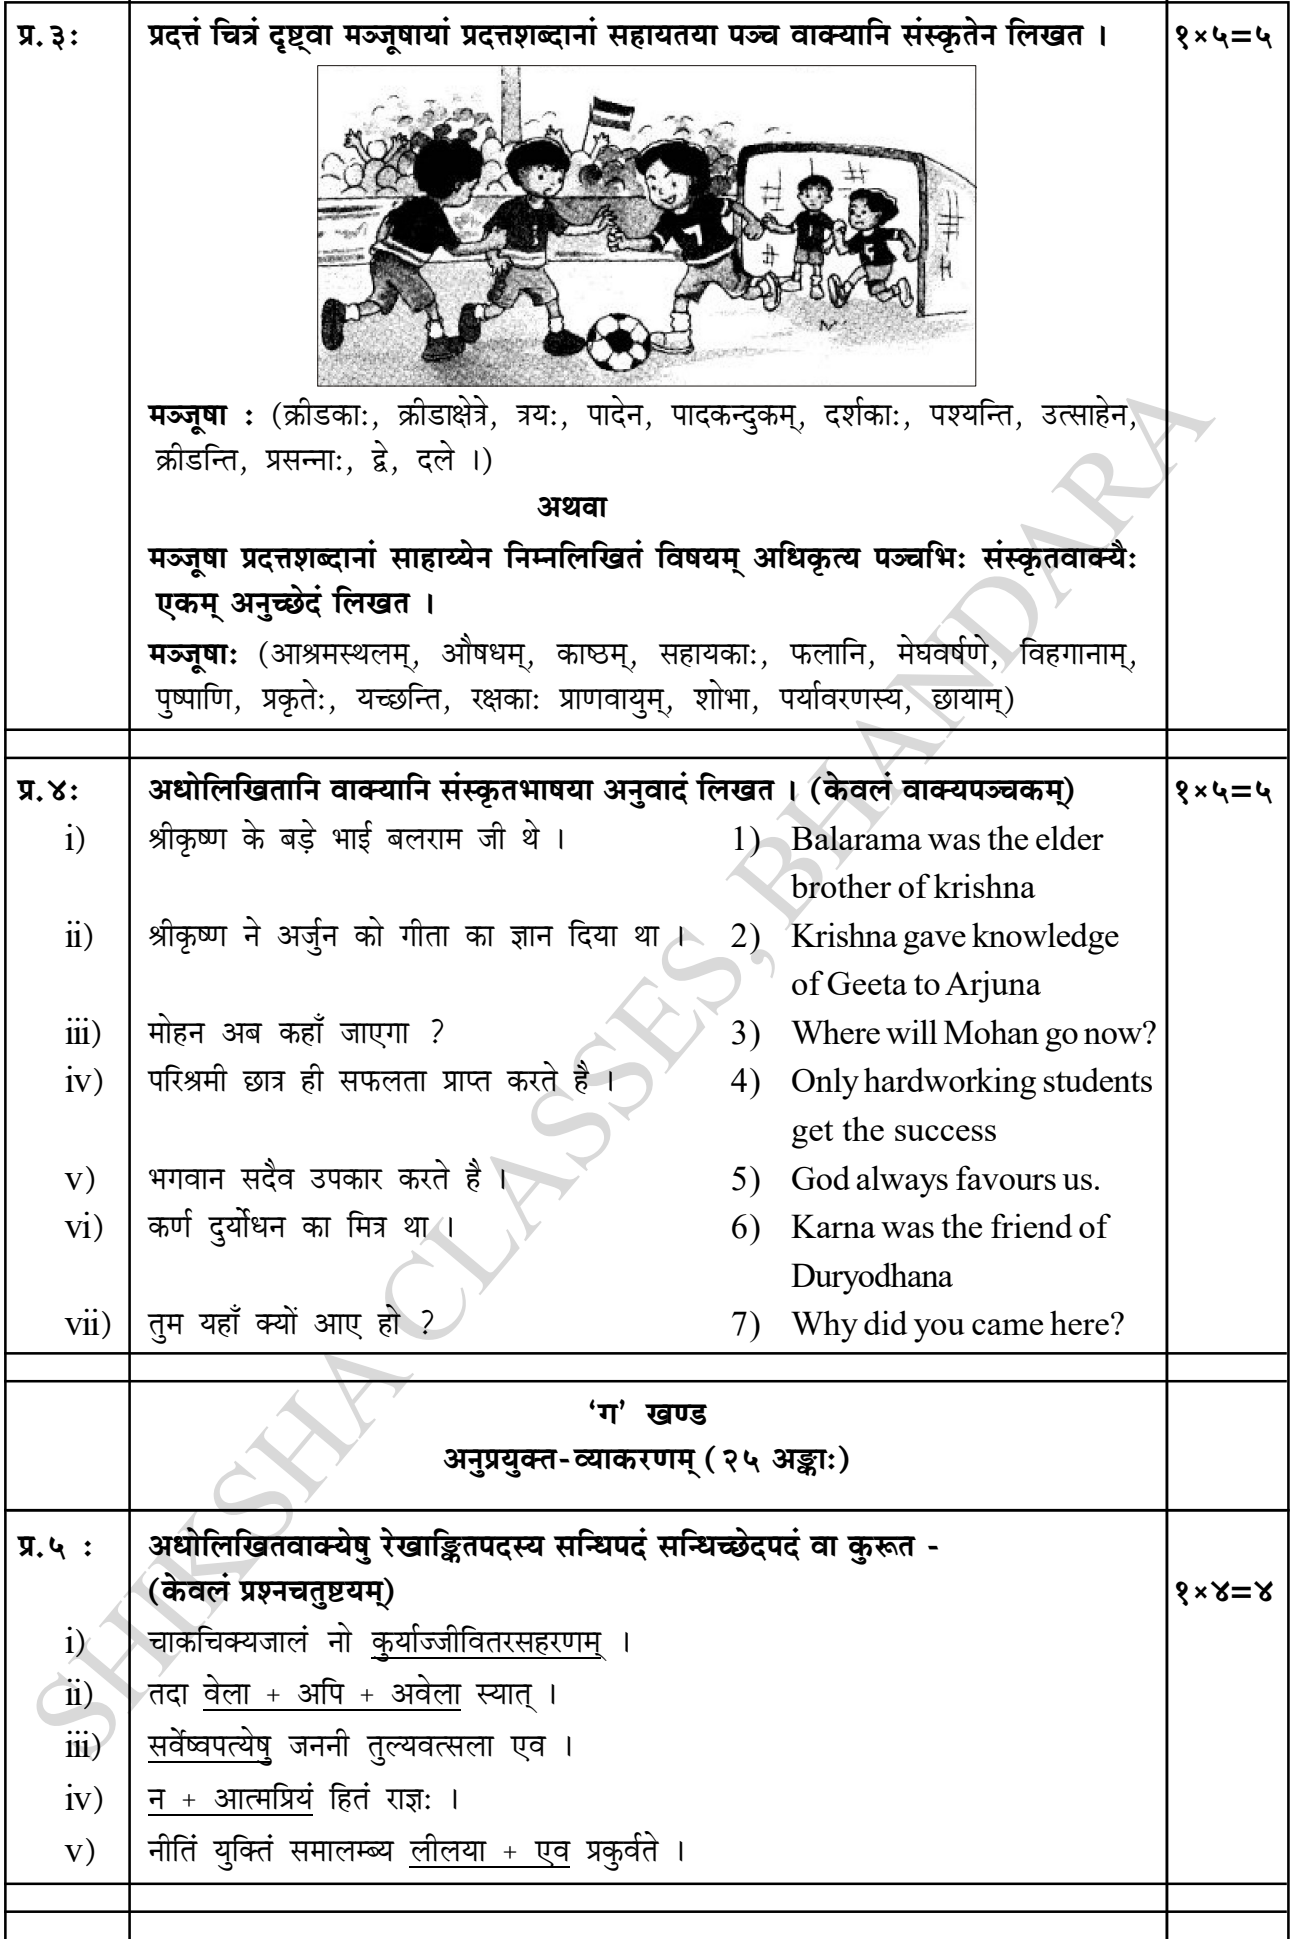 प्र.३ः प्रदत्तं चित्रं दृष्ट्वा मञ्जूषायां प्रदत्तशब्दानां सहायतया पञ्च वाक्यानि संस्कृतेन लिखत । १×५=५
7
मञ्जूषा : (क्रीडकाः, क्रीडाक्षेत्रे, त्रयः, पादेन, पादकन्दुकम्, दर्शकाः, पश्यन्ति, उत्साहेन,
क्रीडन्ति, प्रसन्नाः, द्वे, दले ।)
अथवा
मञ्जूषा प्रदत्तशब्दानां साहाय्येन निम्नलिखितं विषयम् अधिकृत्य पञ्चभिः संस्कृतवाक्यैः
एकम् अनुच्छेदं लिखत ।
मञ्जूषाः (आश्रमस्थलम्, औषधम्, काष्ठम्, सहायकाः, फलानि, मेघवर्षणे, विहगानाम्,
पुष्पाणि, प्रकृतेः, यच्छन्ति, रक्षकाः प्राणवायुम्, शोभा, पर्यावरणस्य, छायाम्)
प्र.४ः अधोलिखितानि वाक्यानि संस्कृतभाषया अनुवादं लिखत । (केवलं वाक्यपञ्चकम्) १×५=५
i) श्रीकृष्ण के बड़े भाई बलराम जी थे । 1) Balarama was the elder
brother of krishna
ii) श्रीकृष्ण ने अर्जुन को गीता का ज्ञान दिया था । 2) Krishna gave knowledge
of Geeta to Arjuna
iii) मोहन अब कहाँ जाएगा ? 3) Where will Mohan go now?
iv) परिश्रमी छात्र ही सफलता प्राप्त करते है । 4) Only hardworking students
get the success
v) भगवान सदैव उपकार करते है । 5) God always favours us.
vi) कर्ण दुर्योधन का मित्र था । 6) Karna was the friend of
Duryodhana
vii) तुम यहाँ क्यों आए हो ? 7) Why did you came here?
‘ग’ खण्ड
अनुप्रयुक्त-व्याकरणम् (२५ अङ्काः)
प्र.५ : अधोलिखितवाक्येषु रेखाङ्कितपदस्य सन्धिपदं सन्धिच्छेदपदं वा कुरूत -
(केवलं प्रश्नचतुष्टयम्) १×४=४
i) चाकचिक्यजालं नो कुर्याज्जीवितरसहरणम् ।
ii) तदा वेला + अपि + अवेला स्यात् ।
iii) सर्वेष्वपत्येषु जननी तुल्यवत्सला एव ।
iv) न + आत्मप्रियं हितं राज्ञः ।
v) नीतिं युक्तिं समालम्ब्य लीलया + एव प्रकुर्वते ।
SHIKSHA CLASSES, BHANDARA